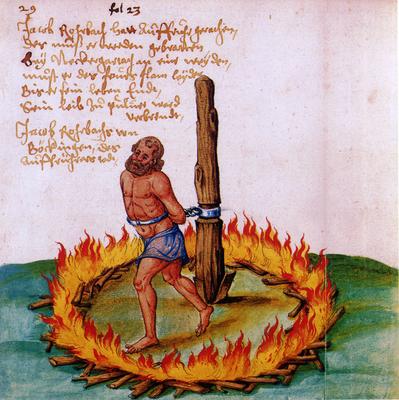 29 fol 23
Jacob Rohrbach hatt Auffruhr
Des must er werden gebratten
Bay Neckergartach an einr weyden,
must er des feurs flam leyden
Bis er sein leben Endt,
Sein leib zu puluer ward
verbrendt.
Jacob Rohrbachs von
Böckingen, des
Auffrührers todt.